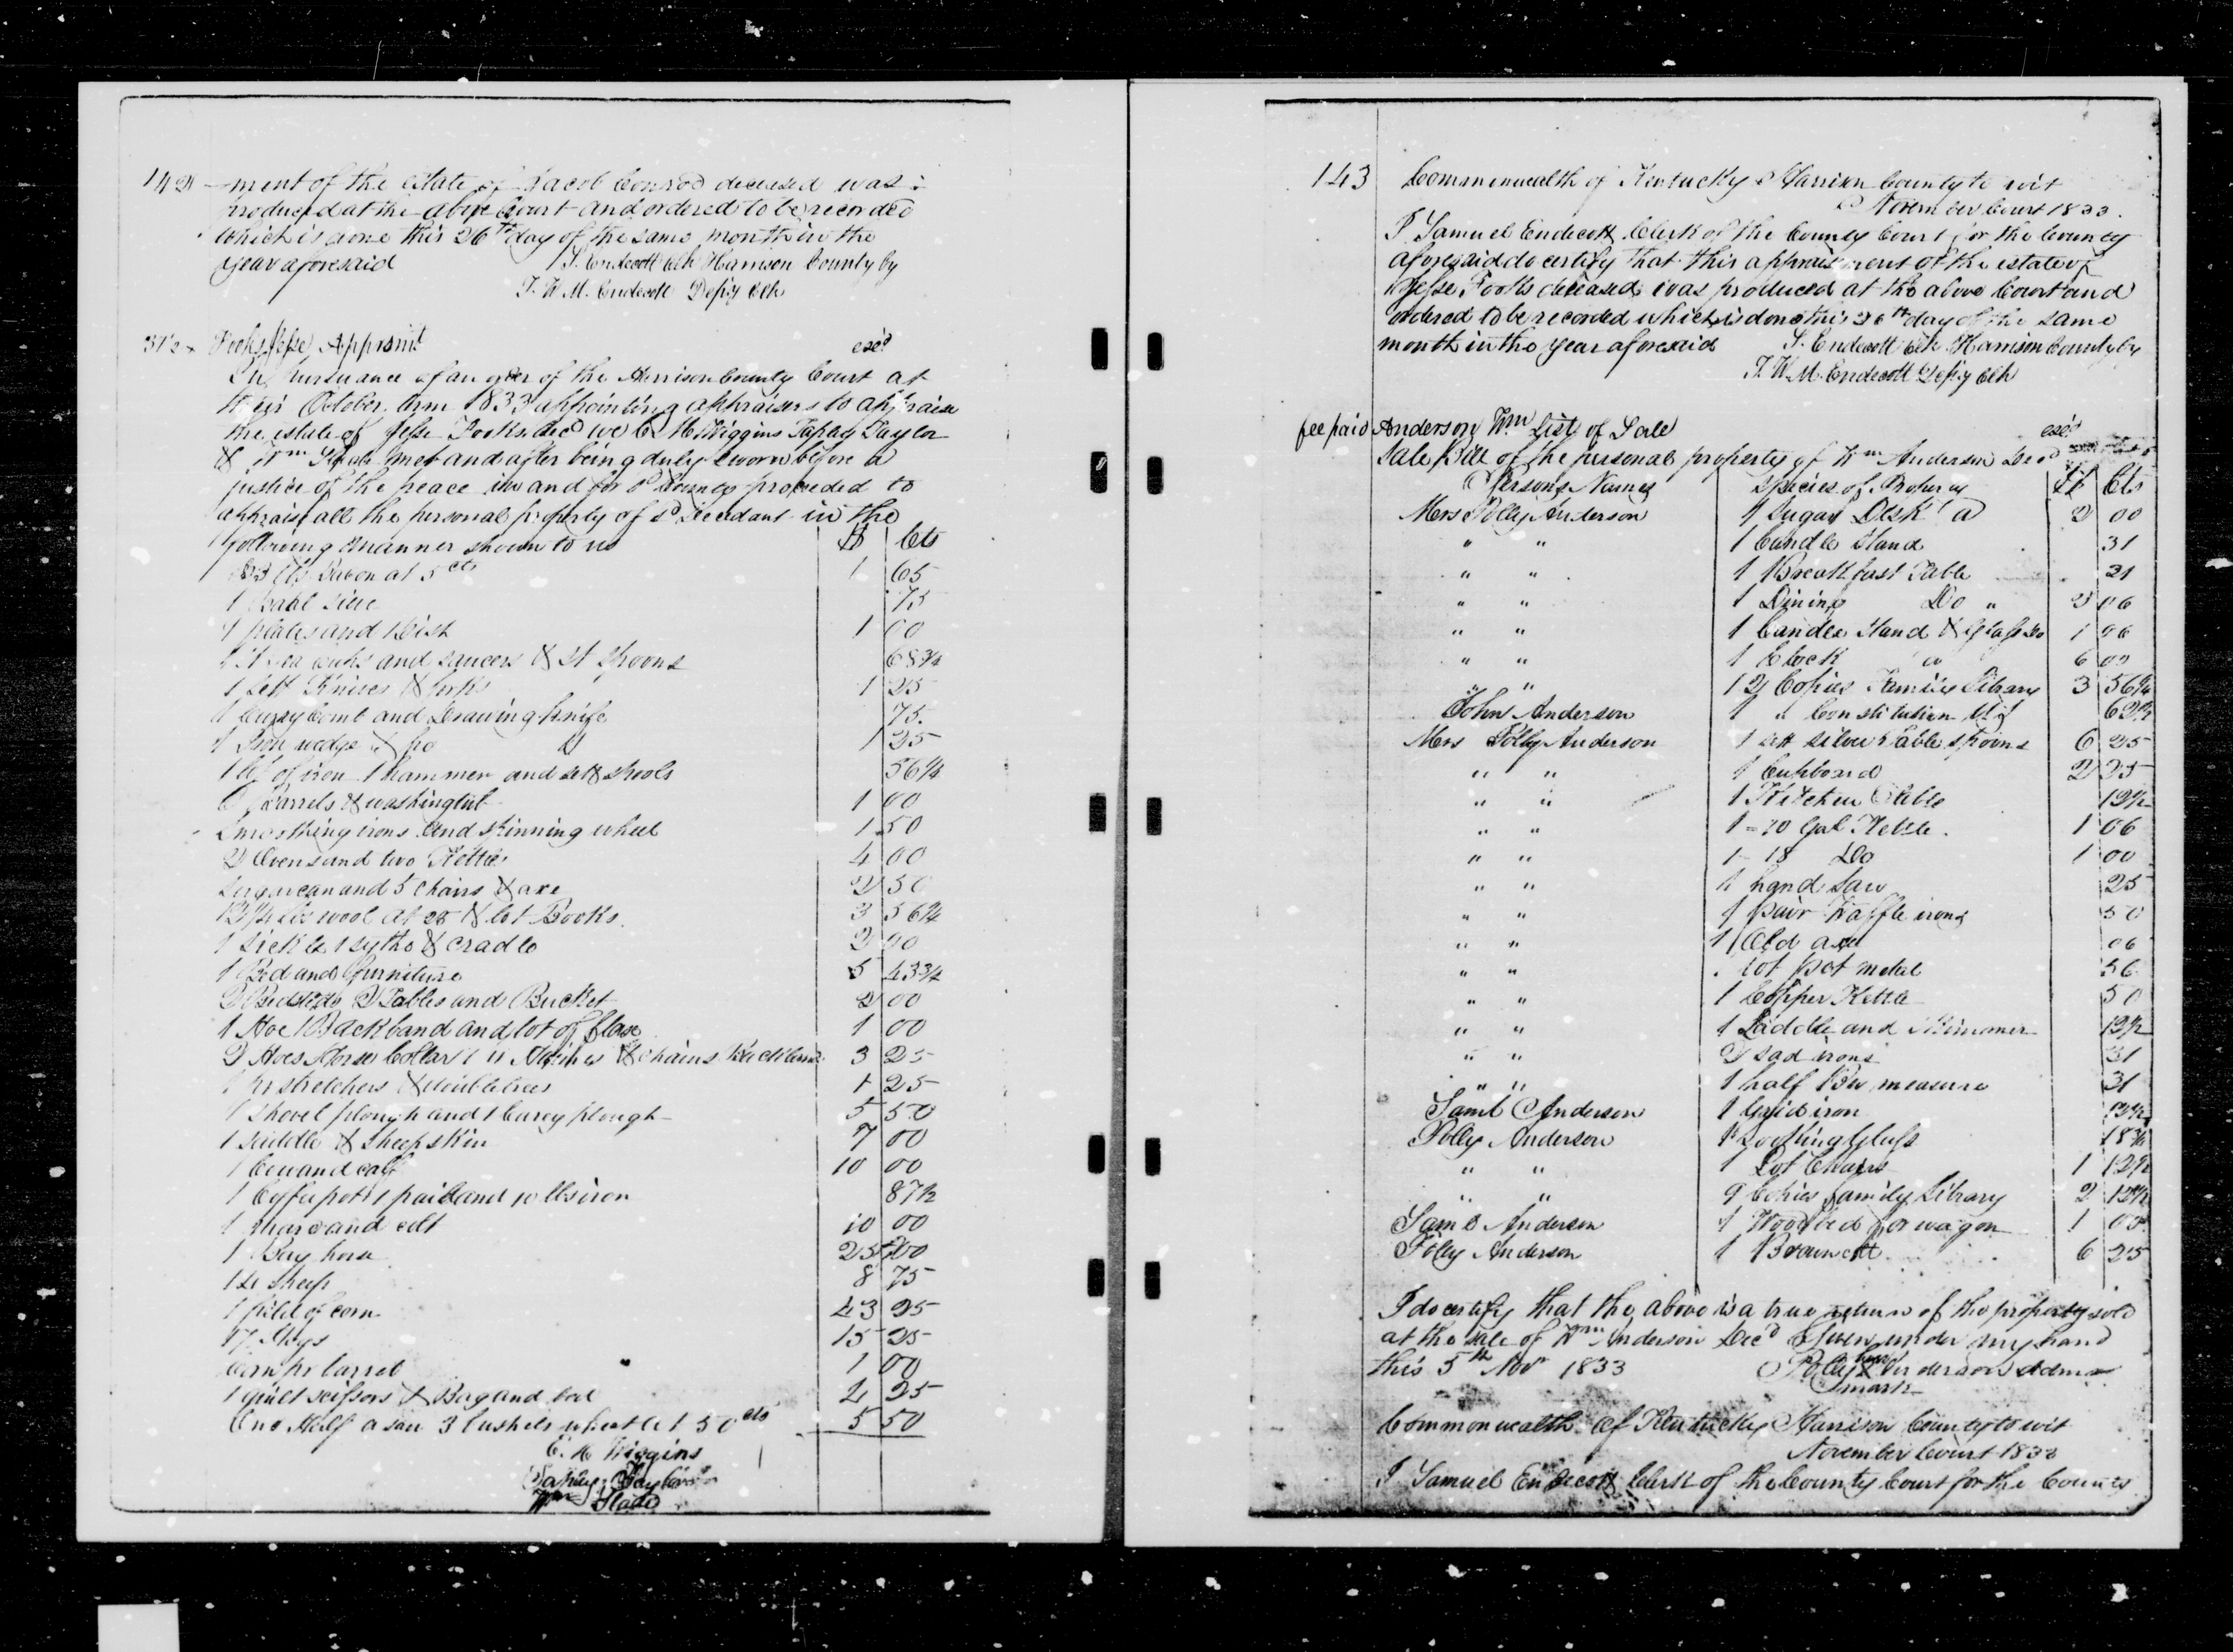 142 -ment of the estate of Jacob Conrod deceased was
produced at the above Court and ordered to be recorded
which is done this 26th day of the same month in the
year aforesaid S. Endecott Clk Harrison County by
T. W. M. Endecott Depy Clk
37½ Fooks Jesse Apprsmt exd
In pursuance of an order of the Harrison County Court at
their October term 1833 appointing appraisers to appraise
the estate of Jesse Fooks decd we C. H Wiggins Tapley Taylor
& Wm Slade met and after being duly sworn before a
justice of the peace in and for sd County proceeded to
appraise all the personal property of sd Decedant in the
following manner shown to us $ Cts
lbs Bacon at 5 cts 1 65
1 sieve 75
plates and 1 dish 1 00
1 st tea cups and saucers & st spoons 68¾
1 sett Knives & forks 1 25
1 Currycomb and Drawing knife 75
1 Iron wedge & fro 1 25
1 of iron 1 hammer and spools 56¼
Barrels & washing tub 1 00
Smoothing irons and spinning wheel 1 50
2 Ovens and two Kettles 4 00
Sugar can and 5 chairs & axe 2 50
lbs wool at 25 & lot Books 3 56¼
1 Sickle 1 sythe & cradle 2 00
1 Bed and furniture 5 43¾
2 Bedsteds 2 Tables and Bucket 2 00
1 Hoe 1 Backband and lot of flax 1 00
2 Hoes Horse Collar & chains 3 25
1 pr stretchers & doubletrees 1 25
1 shovel plough and 1 Carey plough 5 50
1 saddle & sheepskin 7 00
1 Cow and calf 10 00
1 Coffeepot 1 pail and 10 lbs iron 87½
1 mare and colt 10 00
1 Bay horse 25 00
14 Sheep 8 75
1 field of corn 43 25
17 Hogs 15 25
Corn pr barrel 1 00
1 quilt scissors & Bag and 2 25
One Half a saw 3 bushels wheat at 50 cts 5 50
C. H Wiggins
Tapley Taylor
Wm Slade
143 Commonwealth of Kentucky Harrison County to wit
November Court 1833.
I Samuel Endecott Clerk of the County Court for the County
aforesaid do certify that this appraisment of the estate of
Jesse Fooks deceased was produced at the above Court and
ordered to be recorded which is done this 26th day of the same
month in the year aforesaid S. Endecott Clk Harrison County by
T. W. M. Endecott Depy Clk
fee paid Anderson Wm List of Sale exd
Sale Bill of the personal property of Wm Anderson Decd
Persons Names Species of Property $ Cts
Mers Polly Anderson 1 Sugar Desk a 2 00
" " 1 Candle Stand 31
" " 1 Breakfast Table 21
" " 1 Dining Do " 2 06
" " 1 Candle Stand & 1 06
" " 1 Clock a 6 00
" " 12 Copies Family Library 3 56¼
John Anderson 1 " Constitution 62½
Mers Polly Anderson 1 sett silver Table spoons 6 25
" " 1 Cupboard 2 25
" " 1 Kitchen Table 12½
" " 1-20 Gal Kettle 1 06
" " 1-18 Do 1 00
" " 1 hand saw 25
" " 1 pair Waffle irons 50
" " 1 Old axe 06
" " lot pot metal 56
" " 1 Copper Kettle 50
" " 1 Laddle and Skimmer 12½
" " 2 sad irons 31
" " 1 half Bu measure 31
Saml Anderson 1 Gridiron 12½
Polly Anderson 1 Looking Glass 18¾
" " 1 Lot Chairs 1 12½
" " 9 Copies family Library 2 12½
Saml Anderson 1 Wood bed for wagon 1 00
Polly Anderson 1 Brown colt 6 25
I do certify that the above is a true return of the property sold
at the sale of Wm Anderson Decd Given under my hand
this 5th Novr 1833 Polly her x Anderson Admx
mark
Commonwealth of Kentucky Harrison County to wit
November Court 1833
I Samuel Endecott Clerk of the County Court for the County